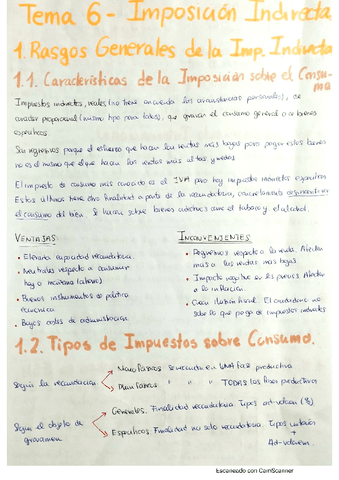 Tema 6 - Imposición Indirecta
1. Rasgos Generales de la Imp. Indirecta
1.1. Características de la Imposición sobre el Consu-
mo
Impuestos indirectos, reales (no tiene en cuenta las circunstancias personales), de
carácter proporcional (mismo tipo para todos), que gravan el consumo general o de bienes
específicos.
Son regresivos porque el esfuerzo que hacen las rentas más bajas para pagar estos bienes
no es el mismo que el que hacen las rentas más altas y medias.
El impuesto de consumo más conocido es el IVA pero hay impuestos indirectos especiales
Estos últimos tiene otra finalidad a parte de la recaudatoria, concretamente desincentivar
el consumo del bien. Se hacen sobre bienes adictivos como el tabaco y el alcohol.
VENTAJAS:
• Elevada capacidad recaudatoria.
• Neutrales respecto a consumir
hoy o mañana (ahorro)
• Buenos instrumentos de política
económica.
• Bajos costes de administración.
INCONVENIENTES
• Regresivos respecto a la renta. Afectan
más a las rentas más bajas
• Impacto negativo en los precios. Afectan
a la inflación.
• Crean ilusión fiscal. El ciudadano no
sabe lo que paga de impuestos indirectos
1.2. Tipos de Impuestos sobre Consumo.
Según la recaudación
Monofásicos: se recaudan en UNA fase productiva
Plurifásicos " " " TODAS las fases productivas
Según el objeto de
gravamen
Generales. Finalidad recaudatoria. Tipos ad-valorem (%)
Específicos. Finalidad no solo recaudatoria. Tipos unitarios
+
Ad-valorem.
Escaneado con CamScanner